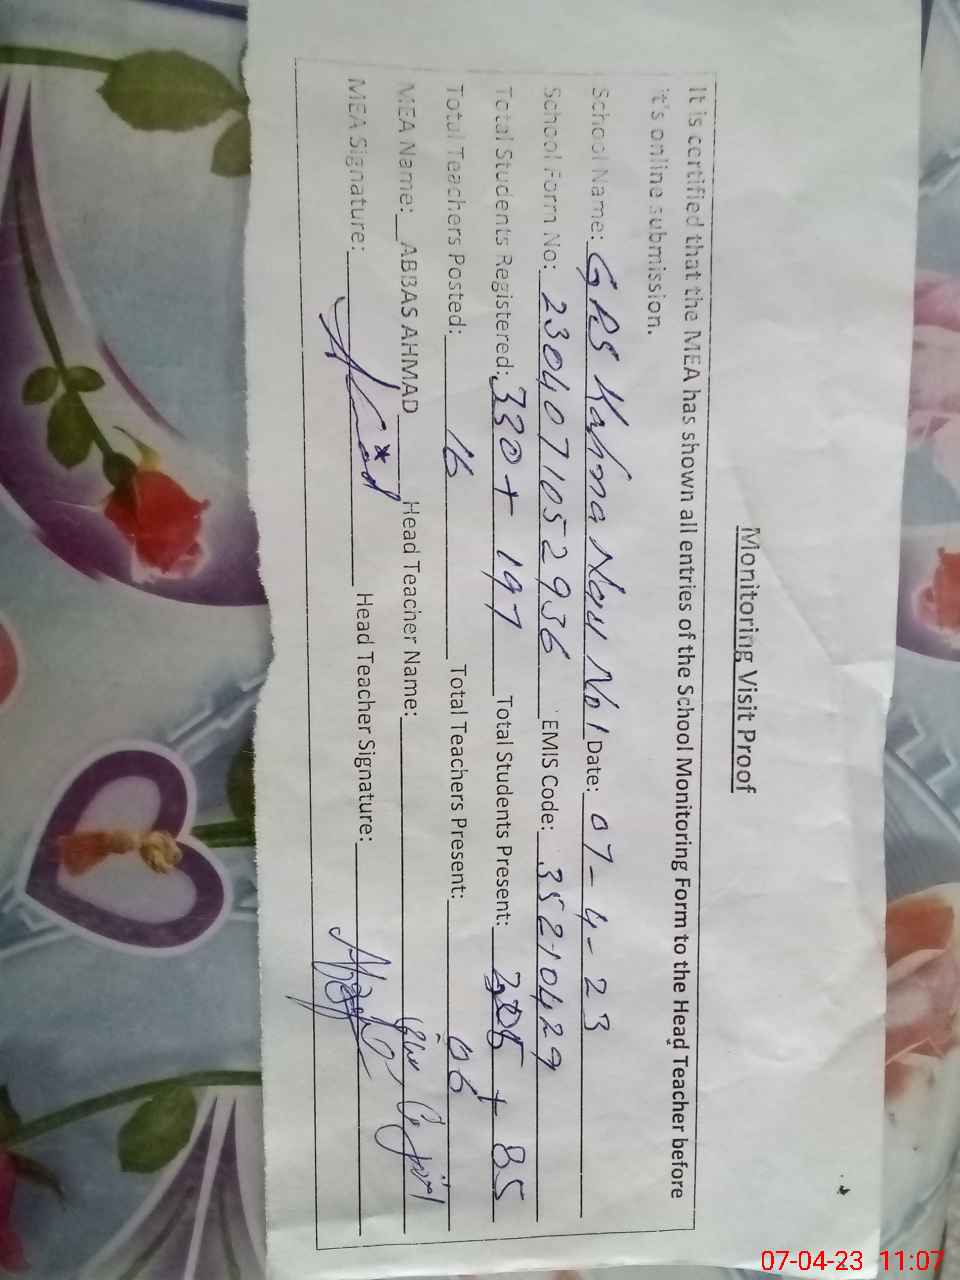 Monitoring Visit Proof
It is certified that the MEA has shown all entries of the School Monitoring Form to the Head Teacher before
it's online submission.
School Name: GPS Kahna Nau No 1 Date: 07-4-23
School Form No: 2304071052936 EMIS Code: 35210429
Total Students Registered: 330 + 197 Total Students Present: + 85
Total Teachers Posted: 16 Total Teachers Present: 06
MEA Name: ABBAS AHMAD Head Teacher Name:
MEA Signature: Head Teacher Signature:
07-04-23 11:07